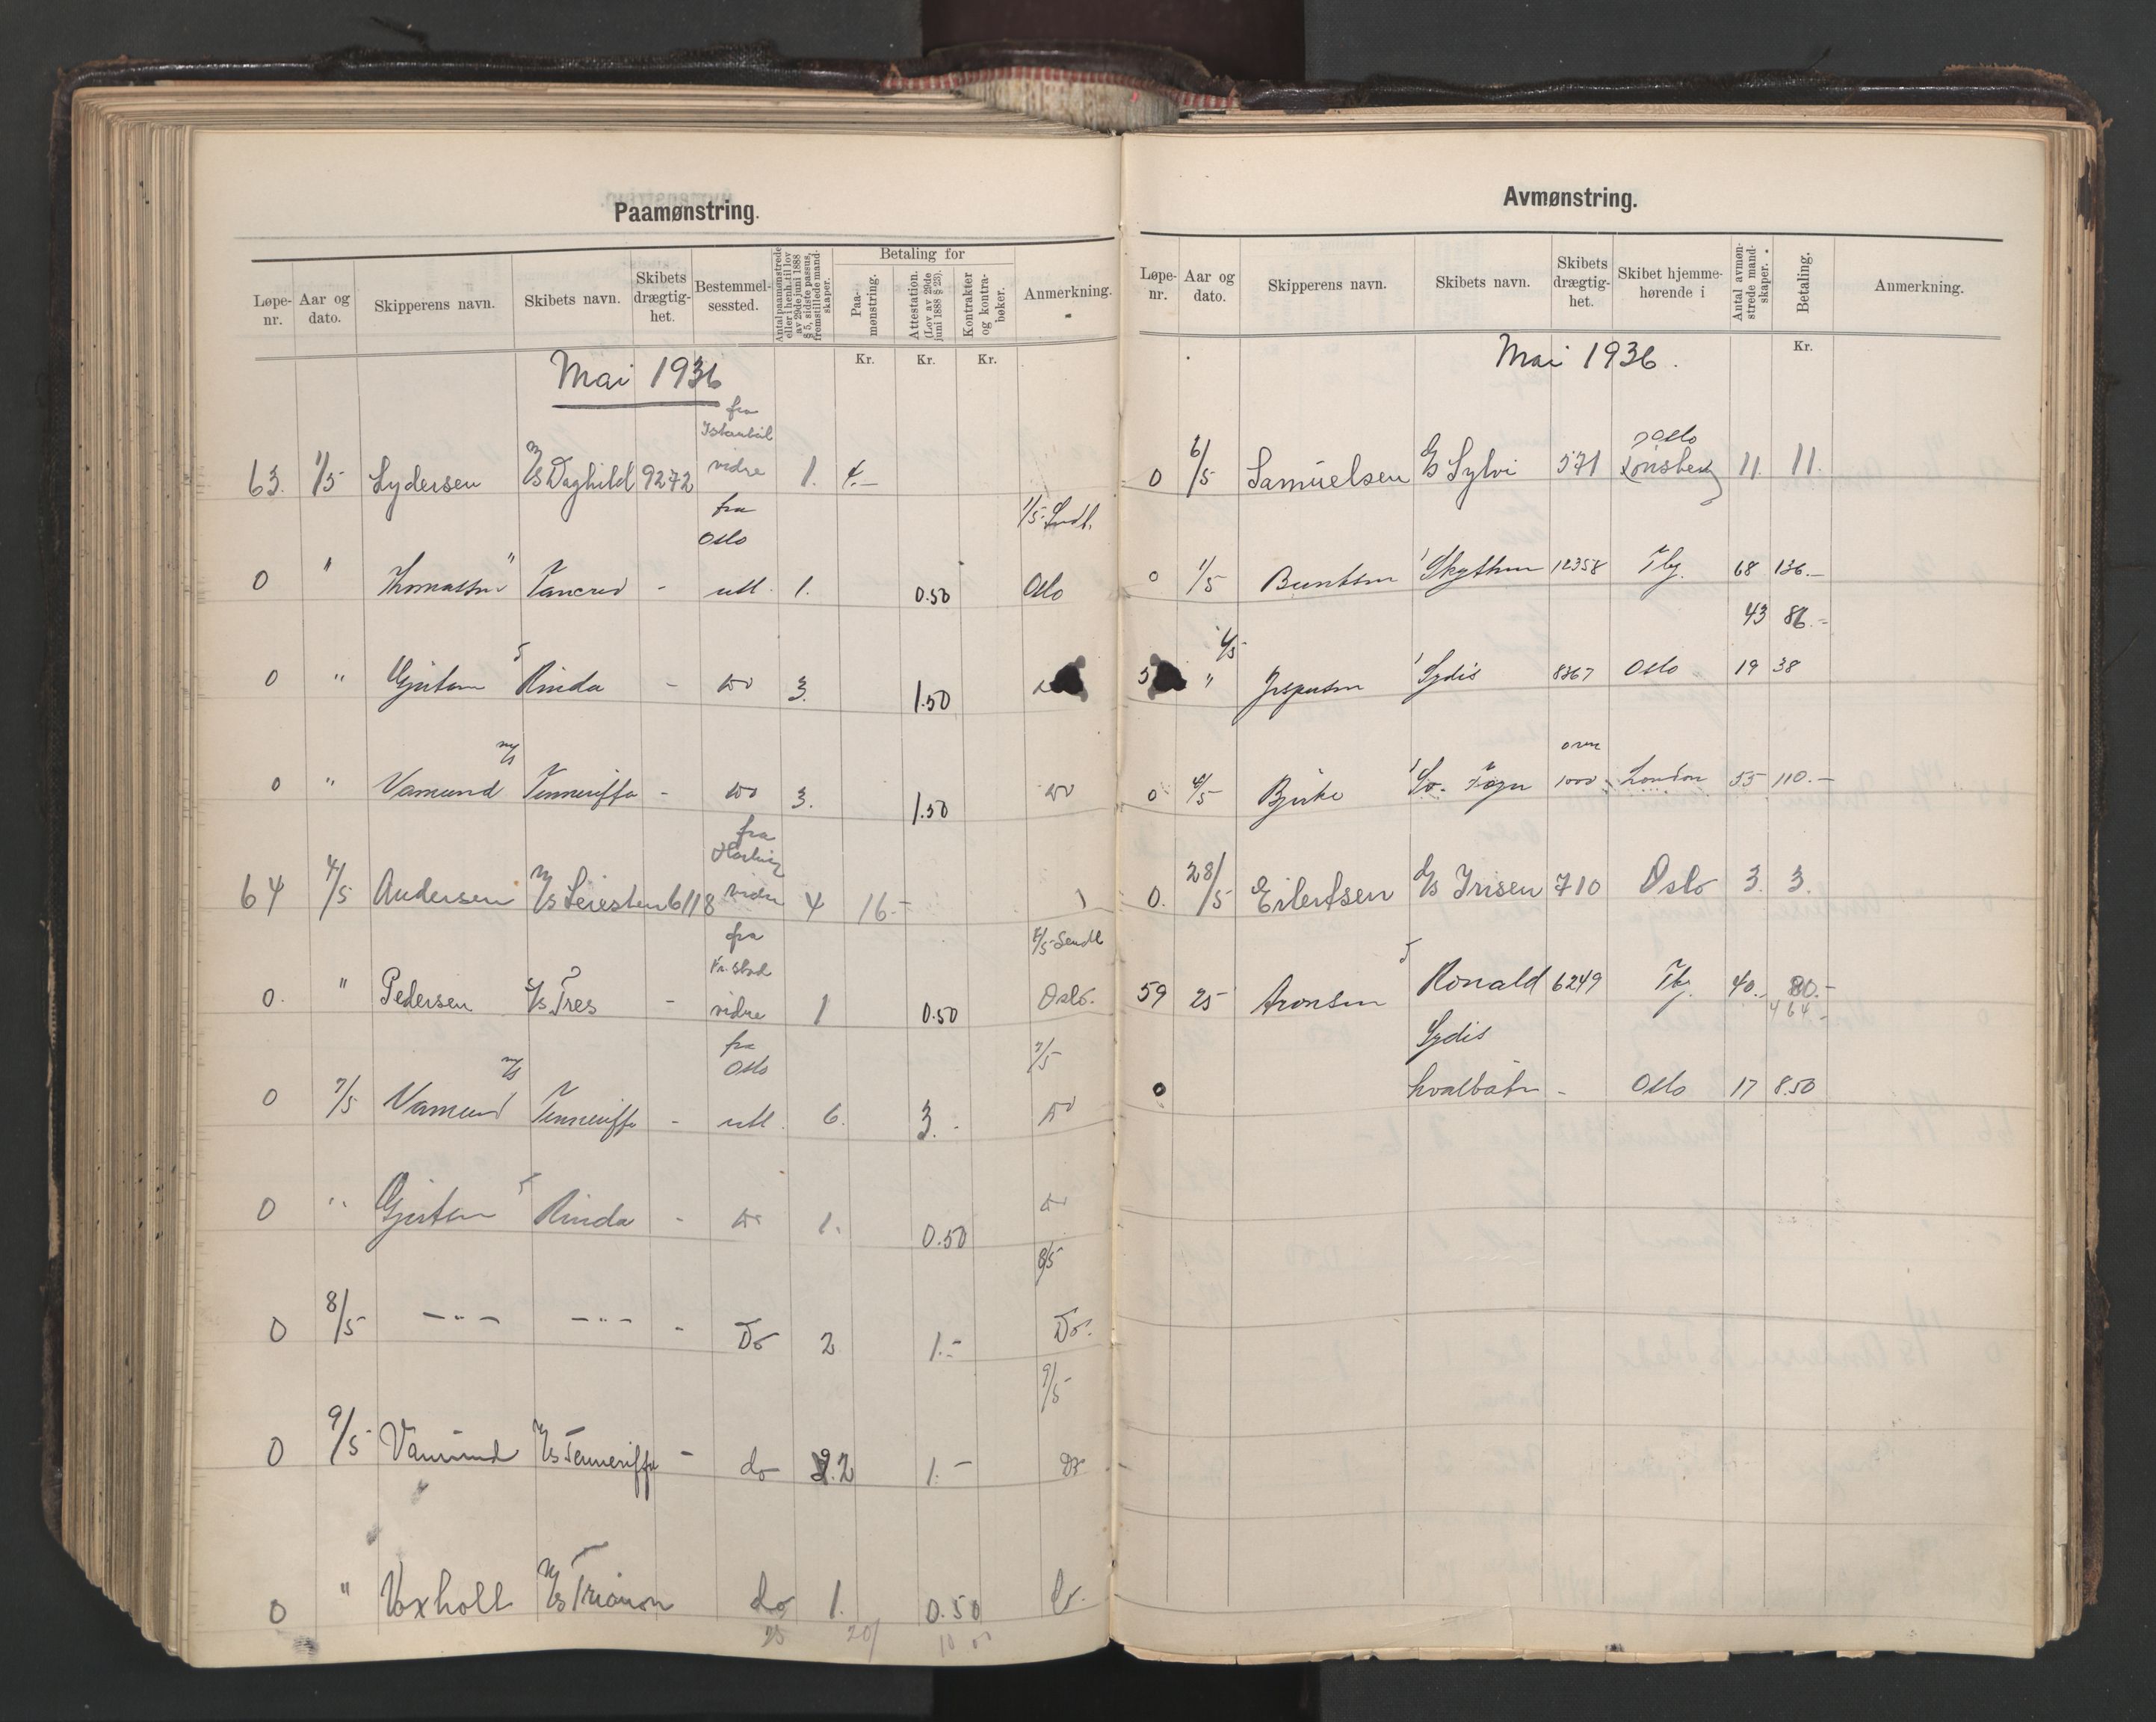 Paamønstring.
Løpe-nr. Aar og dato. Skipperens navn. Skibets navn. Skibets drægtig-het. Bestemmel-sessted. Antal paamønstrede eller i henh. til lov av 29de juni 1888 § 5, sidste passus, fremstillede mand-skaper. Betaling for Paa-mønstring. Attestation. (Lov av 29de juni 1888 § 23). Kontrakter og kontra-bøker. Anmerkning.
Kr. Kr. Kr.
Mai 1936
fra
Istanbul
63. 1/5 Lydersen M/s Daghild 9272 vidre 1. 4.–
fra 1/5-Sendt.
Oslo
0 " Thomassen " Tancred - utl. 1. 0.50 Oslo
0 " Gjertsen Rinda - do 3. 1.50
0 " Vamund m/s Tenneriffa - do 3. 1.50 do
fra
64 4/5 Andersen M/s Leiesten 6118 vidre 4 16.-
fra 4/5-Sendt
Fr.stad
0. " Pedersen S/s Tres - vidre 1 0.50 Oslo.
fra 7/5
Oslo
0 7/5 Vamund m/s Tenneriffa - utl. 6. 3.- do
0 " Gjertsen Rinda - do 1. 0.50 do
8/5
0 8/5 — " — — " — - Do 2 1.- Do.
9/5
0 9/5 Vamund M/s Tenneriffa - do 2 1.- Do
0 " Voxholt M/s Trianon do 1. 0.50 do.
25 20/ 10.00
Avmønstring.
Løpe-nr. Aar og dato. Skipperens navn. Skibets navn. Skibets drægtig-het. Skibet hjemme-hørende i Antal avmøn-strede mand-skaper. Betaling. Anmerkning.
Kr.
Mai 1936.
Oslo
0 6/5 Samuelsen D/s Sylvi 571 Tønsberg 11. 11.
0 1/5 Berntsen Skytteren 12358 Tbg. 68 136.–
43 86.-
4/5
5 " Jespersen Sydis 8367 Oslo 19 38
over
0 4/5 Bjerke So. 1000 London 55 110.–
0. 28/5 Eilertsen D/s Irisen 710 Oslo 3. 3.
59 25 Aronsen Ronald 6249 Tbg. 40. 80.-
464.-
Sydis
0 hvalbåter - Oslo 17 8.50